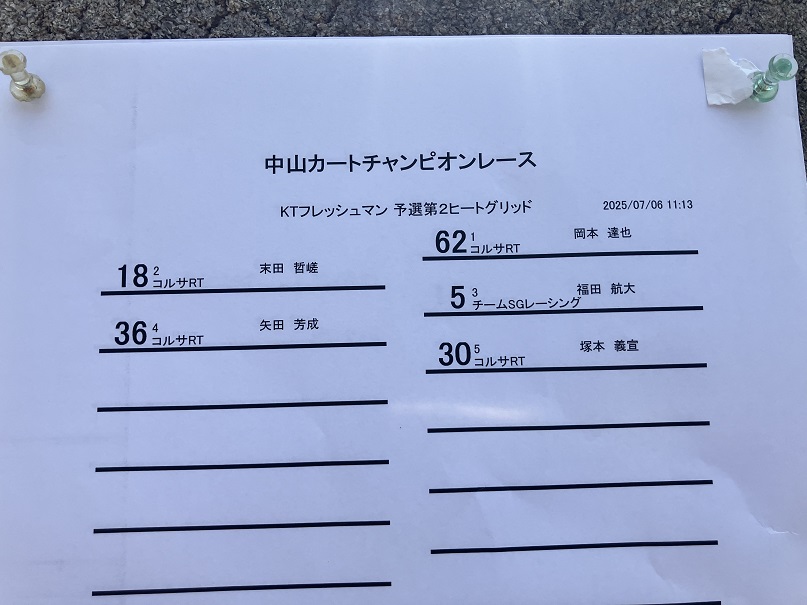 中山カートチャンピオンレース
KTフレッシュマン 予選第2ヒートグリッド 2025/07/06 11:13
62 1 コルサRT 岡本 達也
18 2 コルサRT 末田 哲嵯
5 3 チームSGレーシング 福田 航大
36 4 コルサRT 矢田 芳成
30 5 コルサRT 塚本 義宣